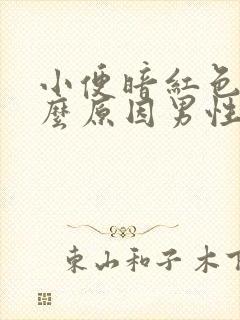 小便暗紅色
麼原因男性
東山和子木下